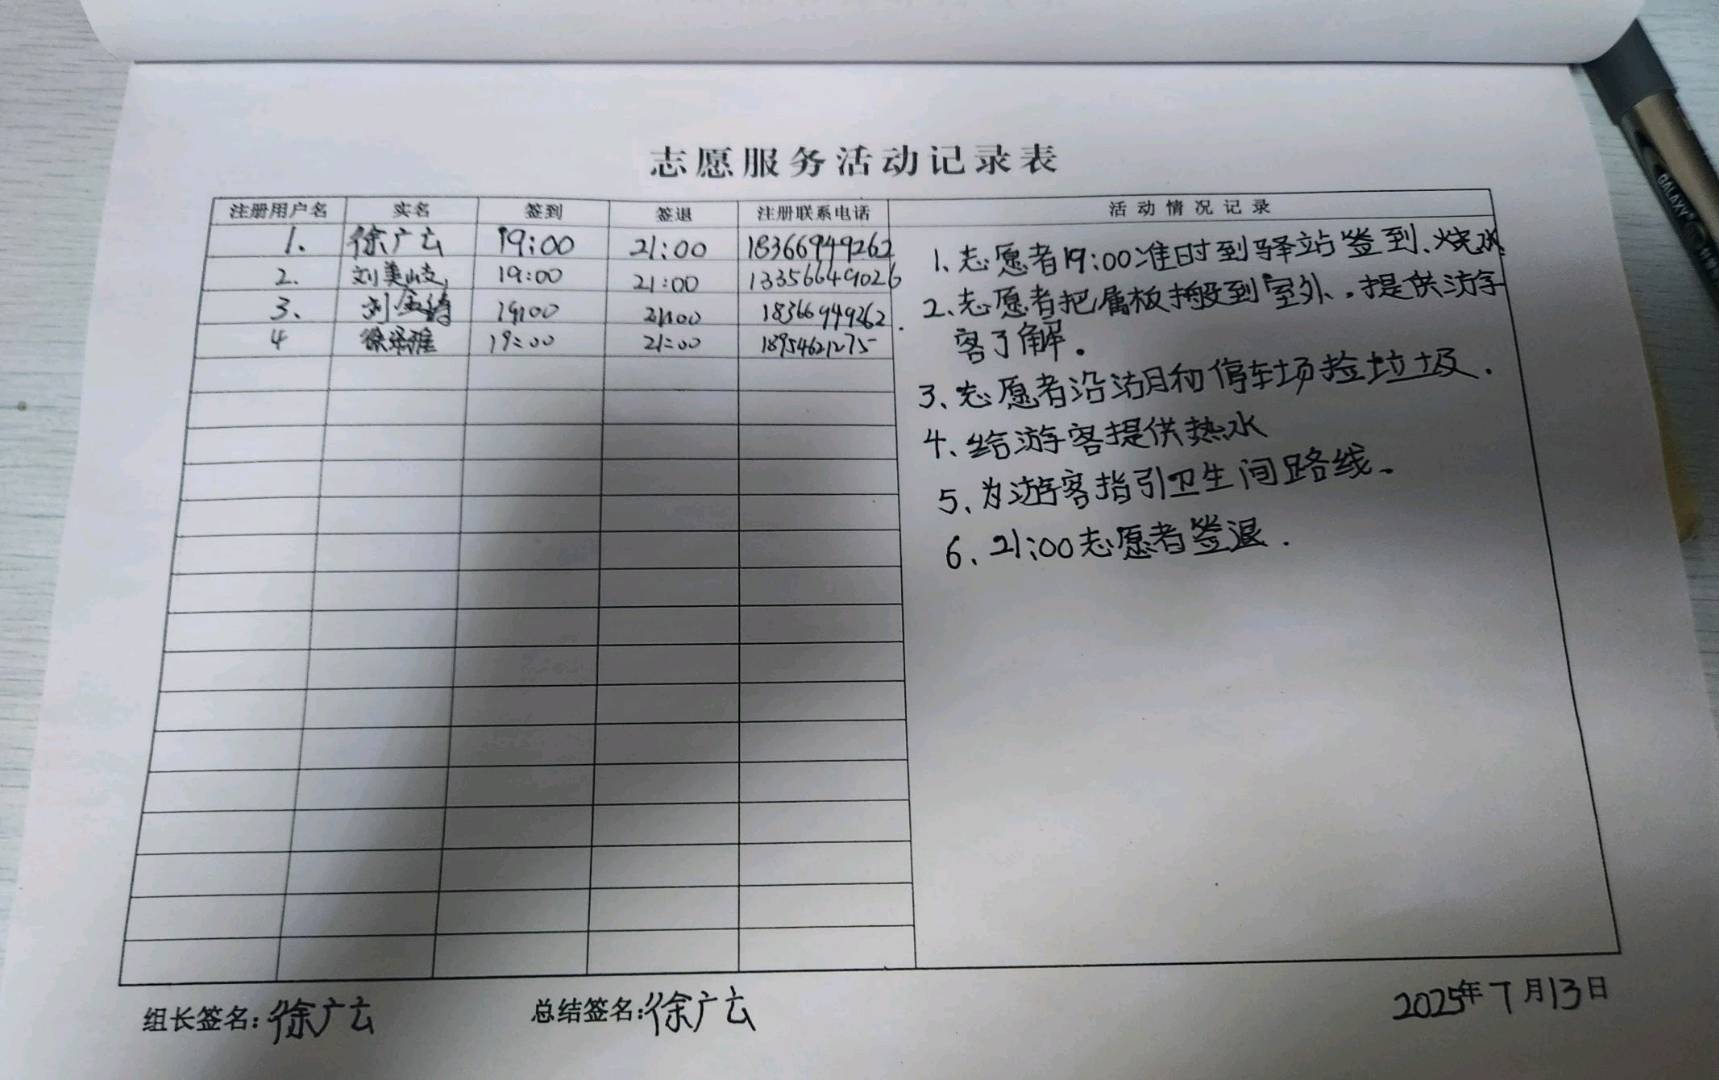 志愿服务活动记录表
注册用户名 实名 签到 签退 注册联系电话 活动情况记录
1. 徐广云 19:00 21:00 18366949262
2. 刘美 19:00 21:00 13356649026
3. 刘 19:00 21:00 18366949262
4 徐泽雅 19:00 21:00 18954621275
1、志愿者19:00准时到驿站签到、烧水
2、志愿者把展板搬到室外、提供游
客了解。
3、志愿者沿湖和停车场捡垃圾.
4、给游客提供热水
5、为游客指引卫生间路线.
6、21:00志愿者签退.
组长签名:徐广云 总结签名:徐广云 2025年7月13日
GALAXY